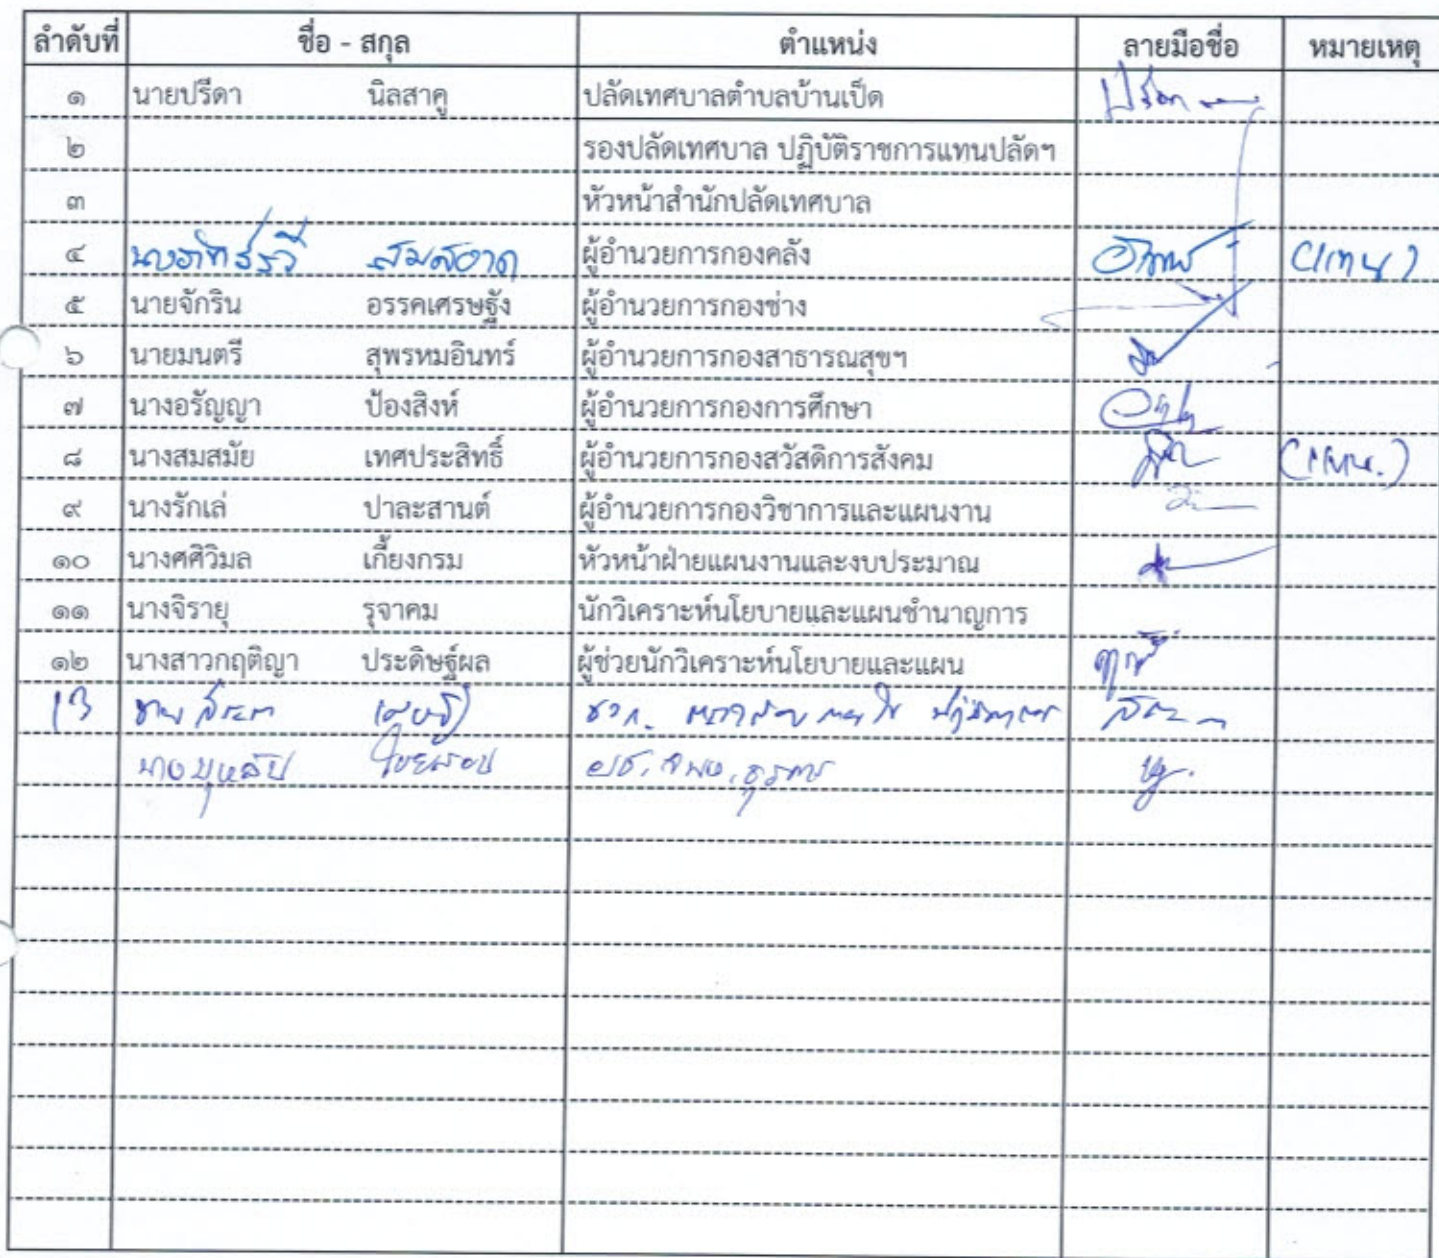 ลำดับที่ ชื่อ - สกุล ตำแหน่ง ลายมือชื่อ หมายเหตุ
๑ นายปรีดา นิลสาคู ปลัดเทศบาลตำบลบ้านเป็ด
๒ รองปลัดเทศบาล ปฏิบัติราชการแทนปลัดฯ
๓ หัวหน้าสำนักปลัดเทศบาล
๔ สมสอาด ผู้อำนวยการกองคลัง (แทน)
๕ นายจักริน อรรคเศรษฐัง ผู้อำนวยการกองช่าง
๖ นายมนตรี สุพรหมอินทร์ ผู้อำนวยการกองสาธารณสุขฯ
๗ นางอรัญญา ป้องสิงห์ ผู้อำนวยการกองการศึกษา
๘ นางสมสมัย เทศประสิทธิ์ ผู้อำนวยการกองสวัสดิการสังคม (แทน.)
๙ นางรักเล่ ปาละสานต์ ผู้อำนวยการกองวิชาการและแผนงาน
๑๐ นางศศิวิมล เกี้ยงกรม หัวหน้าฝ่ายแผนงานและงบประมาณ
๑๑ นางจิรายุ รุจาคม นักวิเคราะห์นโยบายและแผนชำนาญการ
๑๒ นางสาวกฤติญา ประดิษฐ์ผล ผู้ช่วยนักวิเคราะห์นโยบายและแผน
13
นางบุหลัน ผช.จพง.ธุรการ